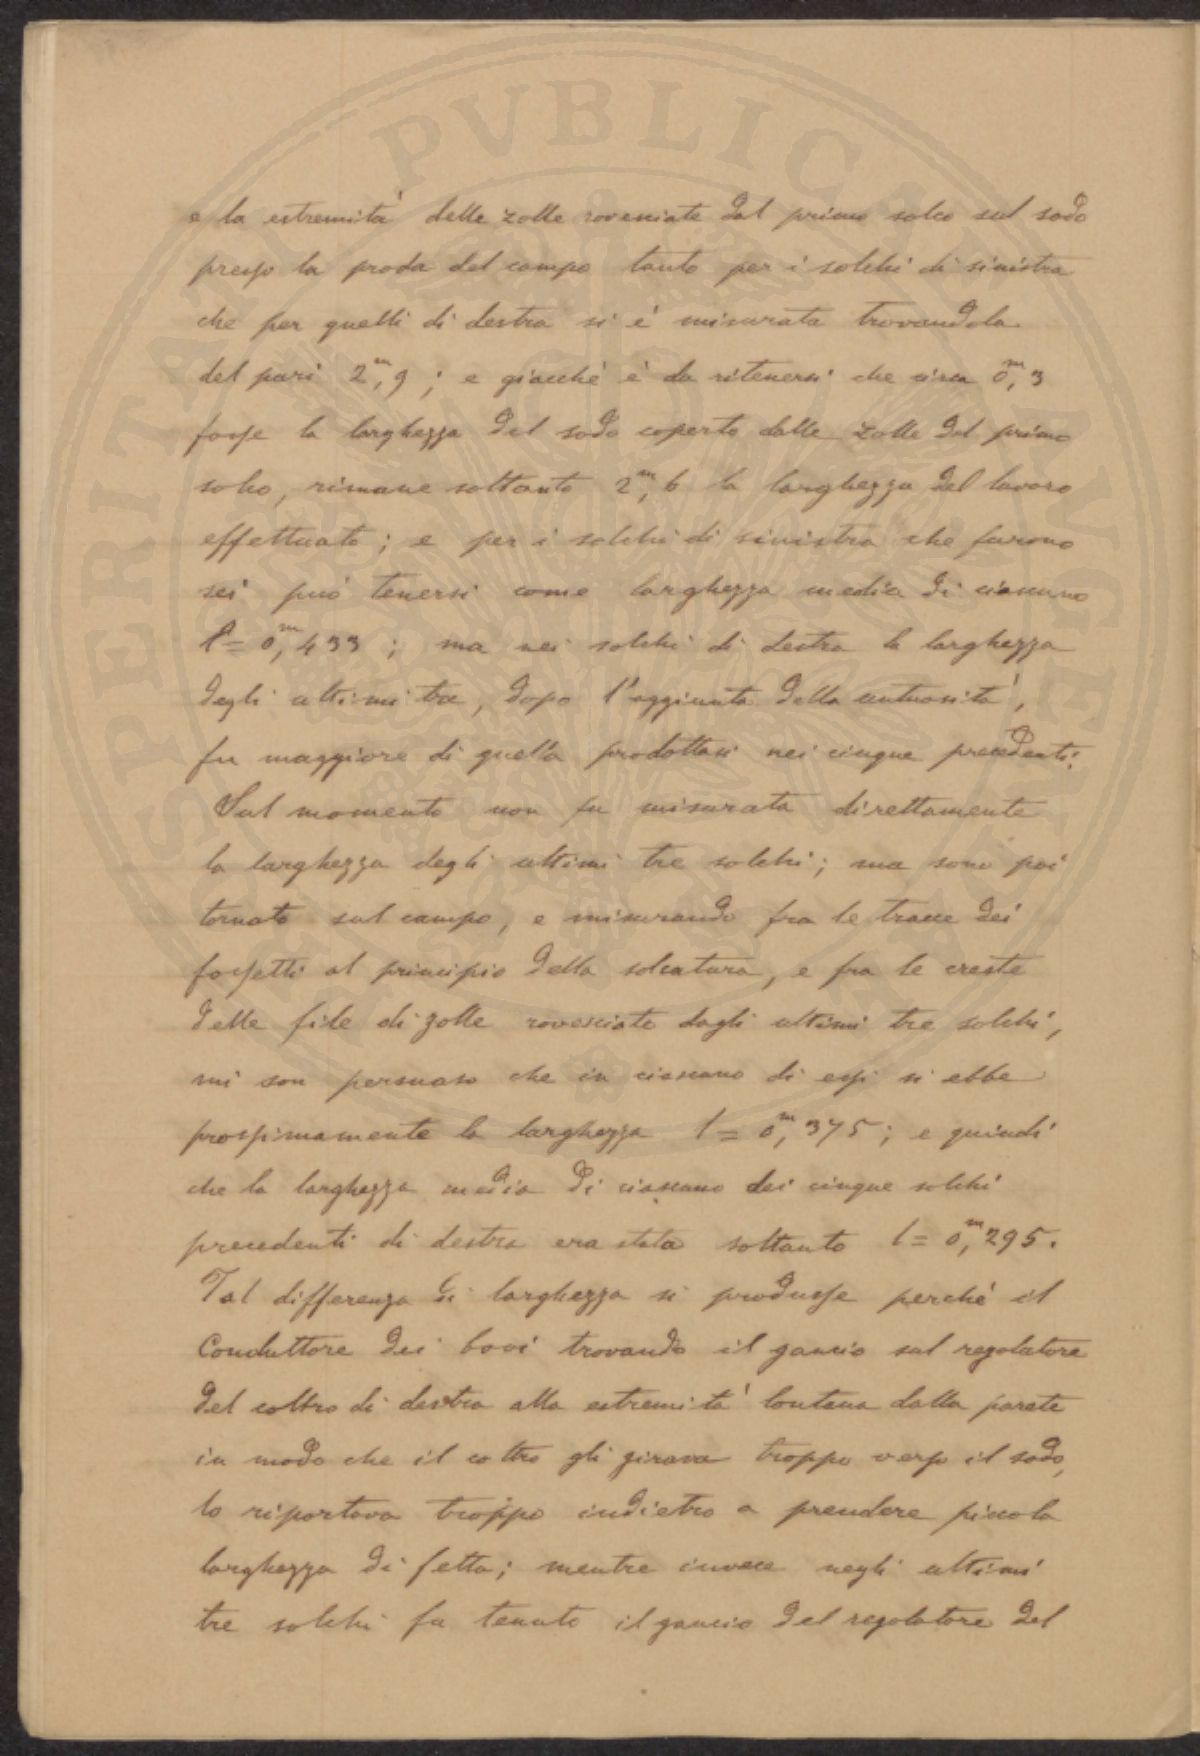 e la estremità delle zolle rovesciate dal primo solco sul sodo
presso la proda del campo tanto per i solchi di sinistra
che per quelli di destra si è misurata trovandola
del pari 2,m9 ; e giacchè è da ritenersi che circa 0,m3
fosse la larghezza del sodo coperto dalle zolle del primo
solco, rimane soltanto 2,m6 la larghezza del lavoro
effettuato ; e per i solchi di sinistra che furono
sei può tenersi come larghezza media di ciascuno
l = 0,m433 ; ma nei solchi di destra la larghezza
degli ultimi tre, dopo l'aggiunta della
fu maggiore di quella prodottasi nei cinque precedenti.
Sul momento non fu misurata direttamente
la larghezza degli ultimi tre solchi ; ma sono poi
tornato sul campo, e misurando fra le tracce dei
fossetti al principio della solcatura, e fra le creste
delle file di zolle rovesciate dagli ultimi tre solchi,
mi son persuaso che in ciascuno di essi si ebbe
prossimamente la larghezza l = 0,m375 ; e quindi
che la larghezza media di ciascuno dei cinque solchi
precedenti di destra era stata soltanto l = 0,m295.
Tal differenza di larghezza si produsse perchè il
Conduttore dei bovi trovando il gancio sul regolatore
del coltro di destra alla estremità lontana dalla parete
in modo che il coltro gli girava troppo verso il sodo,
lo riportava troppo indietro a prendere piccola
larghezza di fetta ; mentre invece negli ultimi
tre solchi fu tenuto il gancio del regolatore del